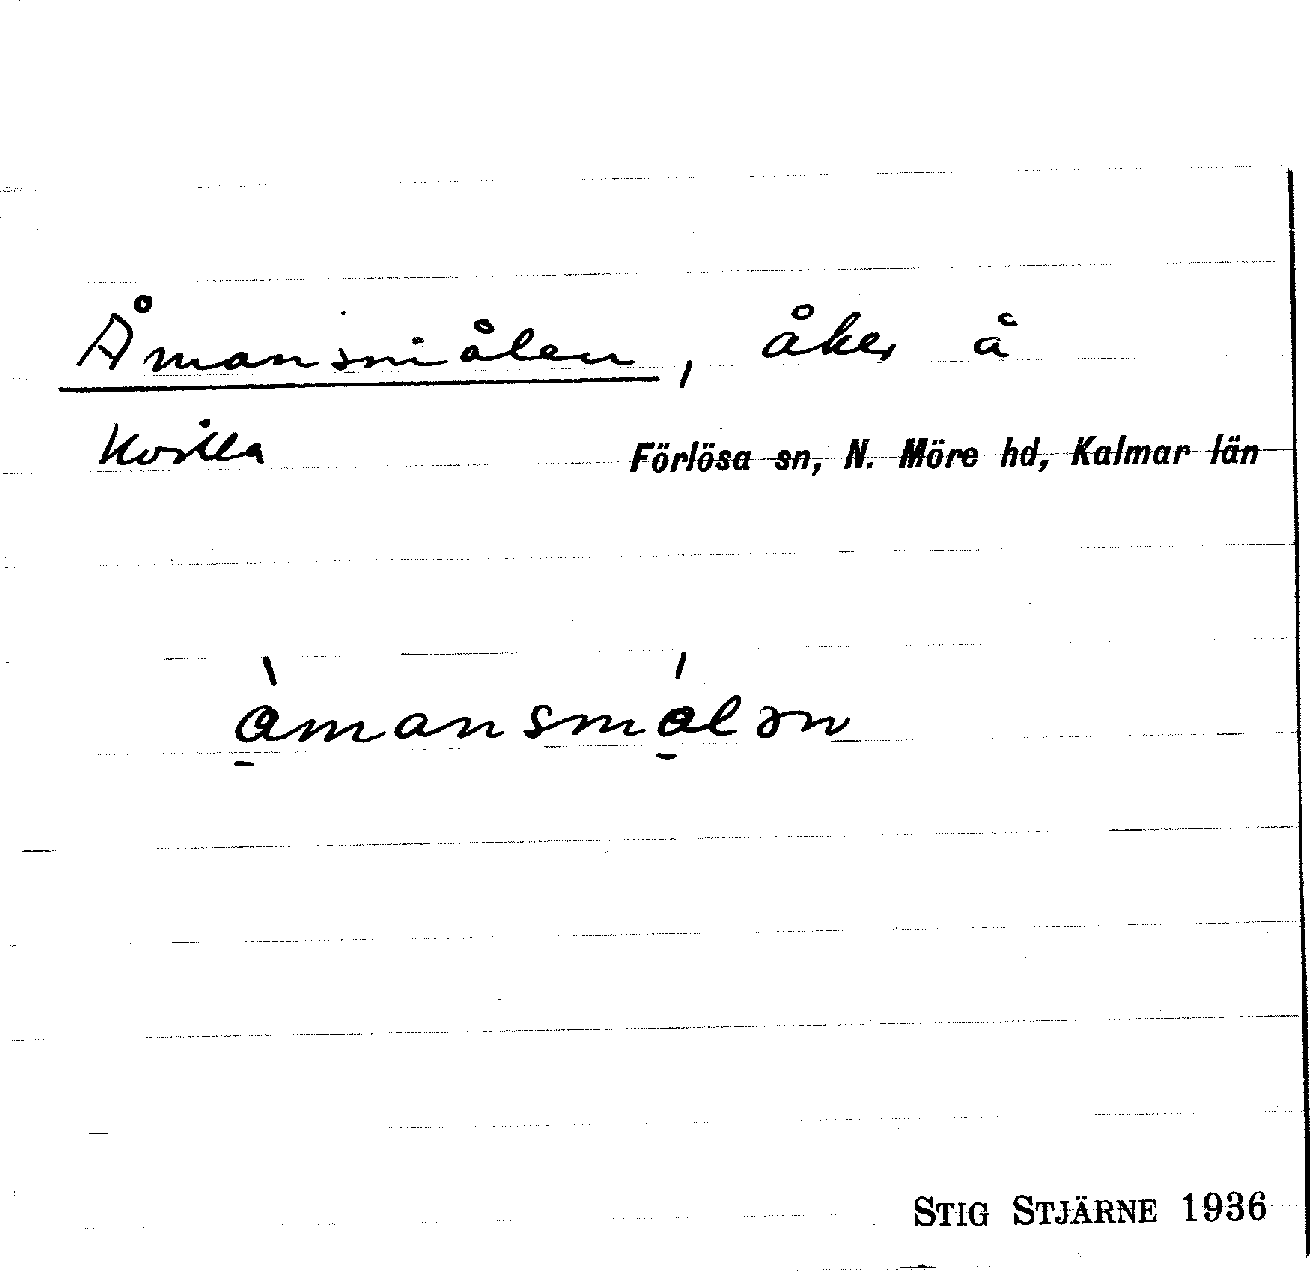 Åmansmålen, åker å
Kvilla Förlösa sn, N. Möre hd, Kalmar län
å̠̀mansmǻ̠lən
STIG STJÄRNE 1936